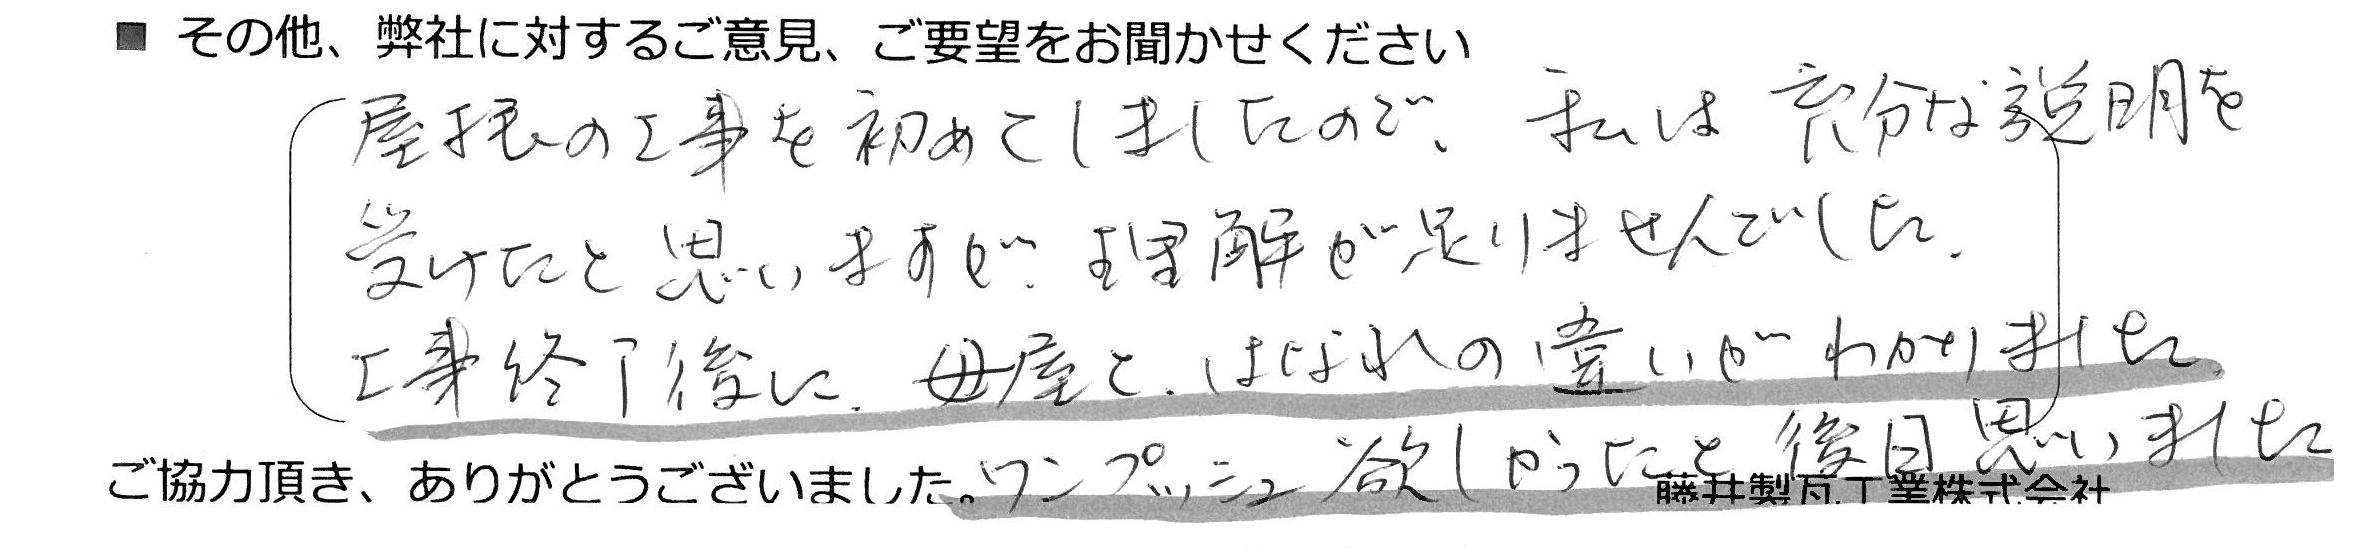 ■ その他、弊社に対するご意見、ご要望をお聞かせください
屋根の工事を初めてしましたので、私は充分な説明を
受けたと思いますが、理解が足りませんでした。
工事終了後に、母屋と、はなれの違いがわかりました。
ワンプッシュ欲しかったと後日思いました
ご協力頂き、ありがとうございました。
藤井製瓦工業株式会社